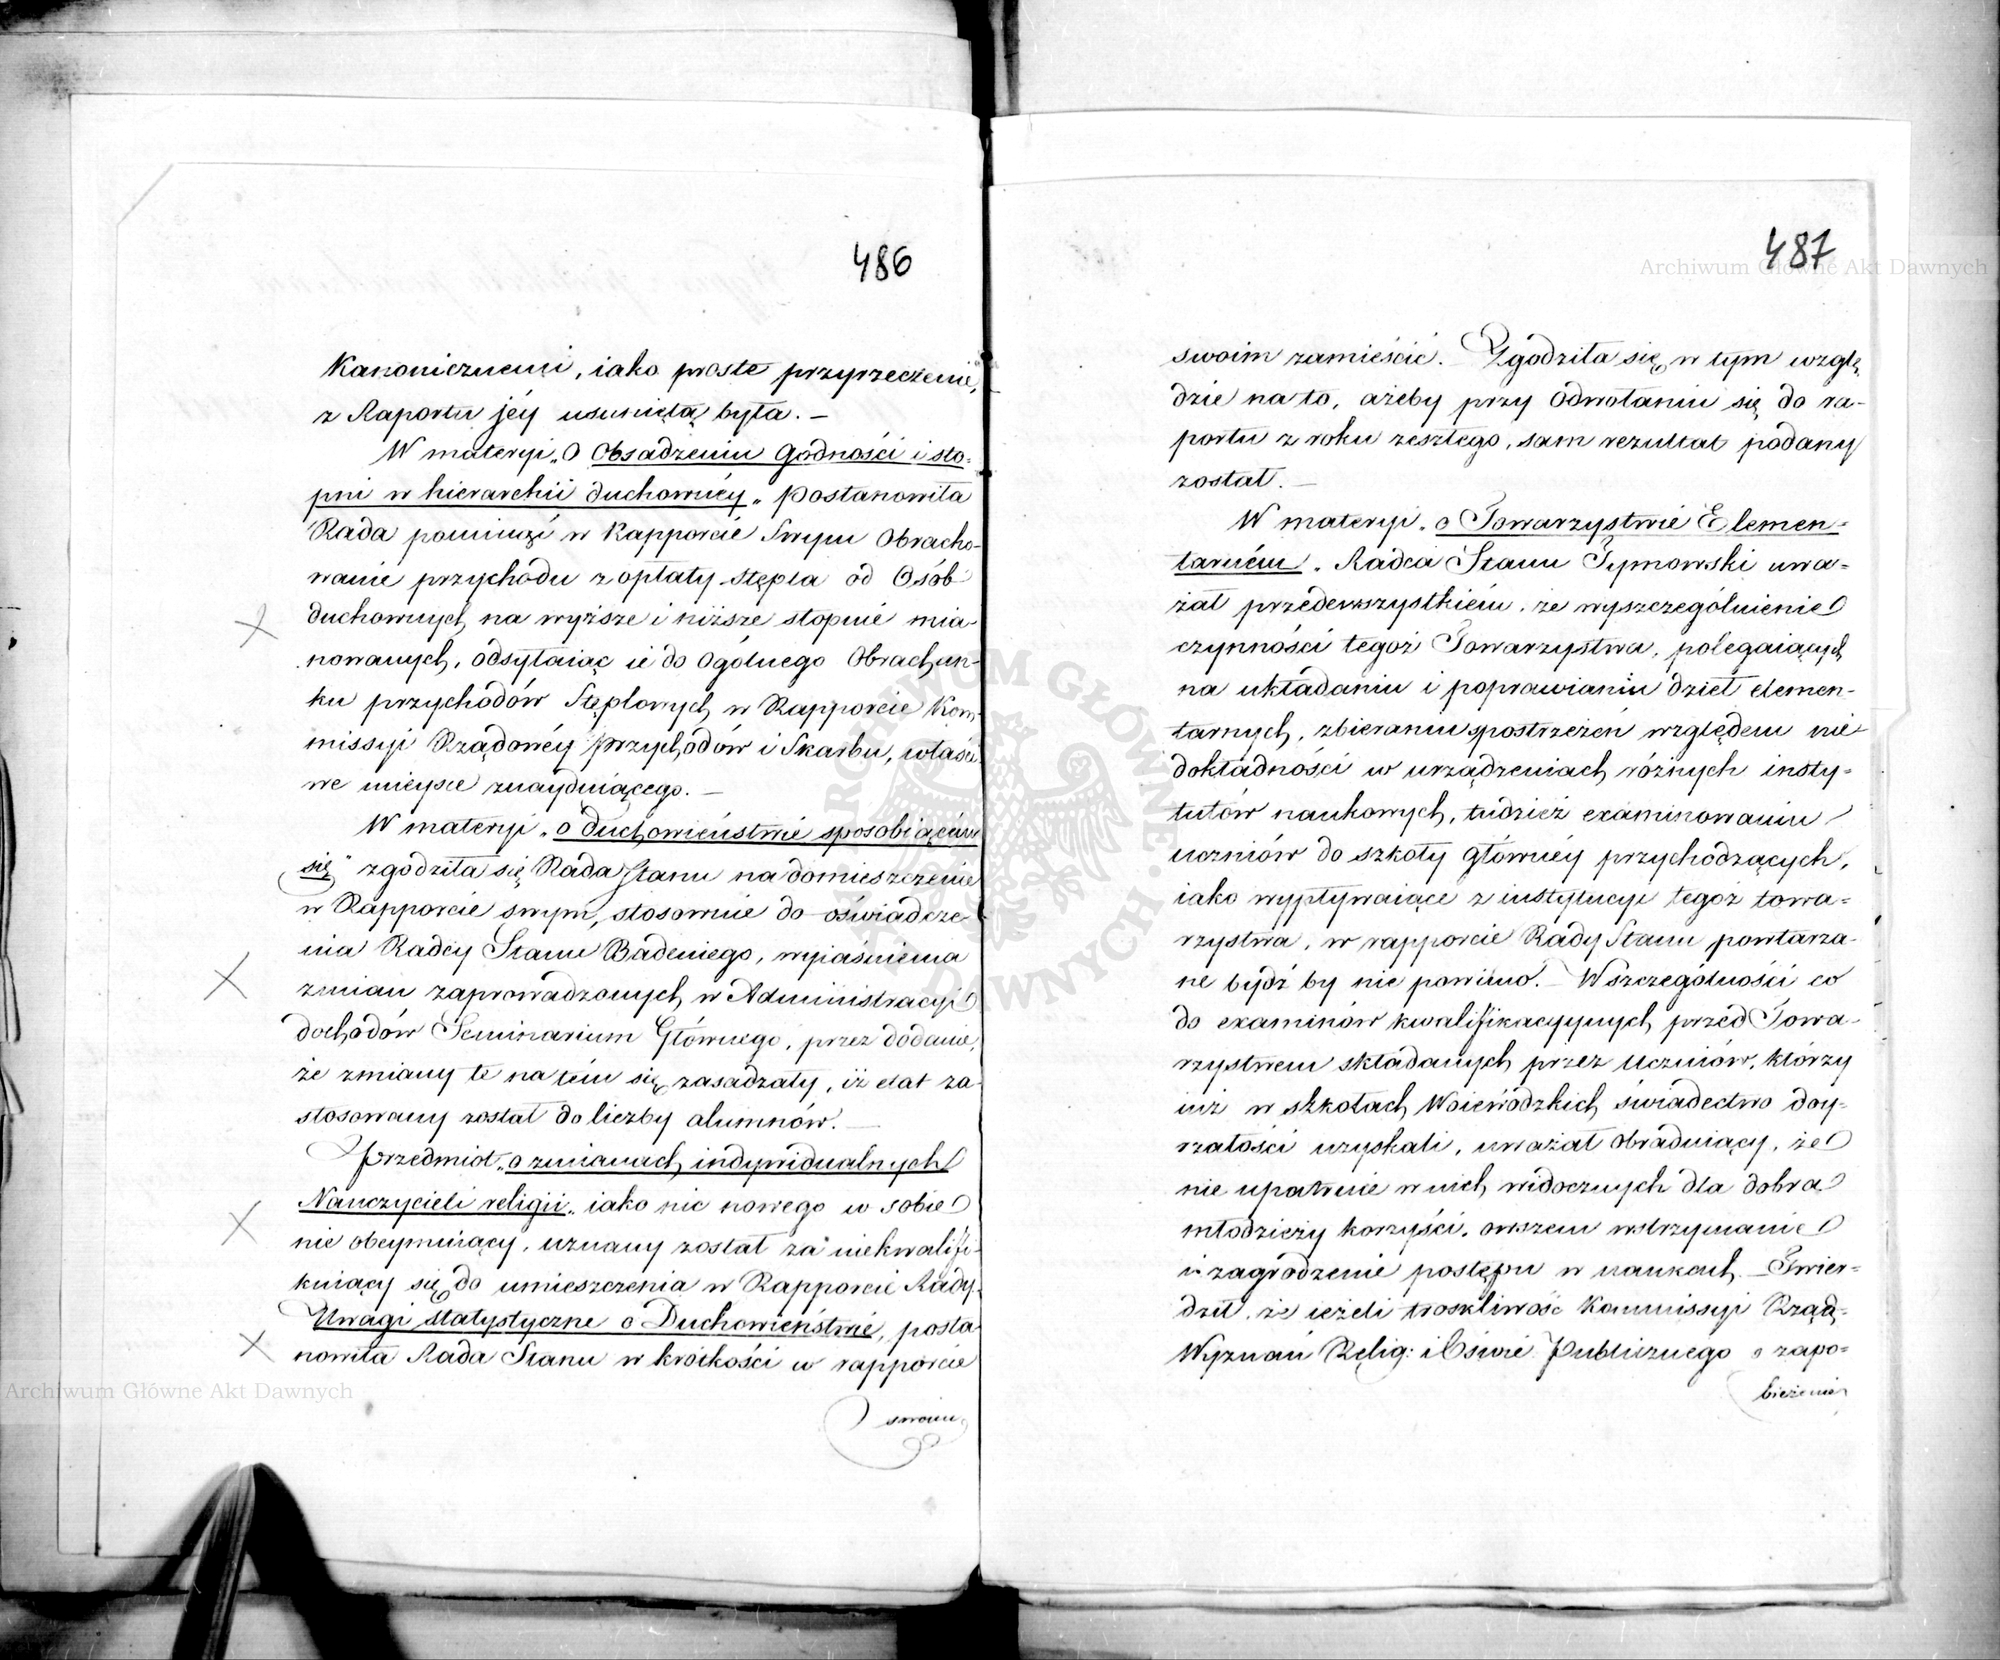 486
Kanonicznemi, iako proste przyrzeczenie,
z Raportu jéy usunięta była. –
W materyi „o Obsadzeniu Godności i sto-
pni w hierarchii duchownéy„ postanowiła
Rada pominąć w Rapporcie Swym Obracho-
wanie przychodu z opłaty stępla od Osób
duchownych na wyższe i niższe stopnie mia-
nowanych, odsyłaiąc ie do Ogólnego Obrachun-
ku przychodów Stęplowych w Rapporcie Kom-
missyi Rządowéy przychodów i Skarbu, właści
we mieysce znayduiącego. –
W materyi „o duchowieństwie sposobiącém
się" zgodziła się Rada Stanu na domieszczenie
w Rapporcie swym, stosownie do oświadcze-
nia Radcy Stanu Badeniego, wyiaśnienia
zmian zaprowadzonych w Administracyi
dochodów Seminarium Głównego, przez dodanie,
że zmiany te na tém się zasadzały, iż etat za-
stosowany został do liczby alumnów. –
Przedmiot „o zmianach indywidualnych
Nauczycieli religii„ iako nic nowego w sobie
nie obeymuiący, uznany został za niekwalifi-
kuiący się do umieszczenia w Rapporcie Rady.
Uwagi statystyczne o Duchowieństwie, posta-
nowiła Rada Stanu w krótkości w rapporcie
swoim
487
swoim zamieścić. – Zgodziła się w tym wzglę
dzie na to, ażeby przy Odwołaniu się do ra-
portu z roku zeszłego, sam rezultat podany
został. –
W materyi „o Towarzystwie Elemen-
tarném„ Radca Stanu Tymowski uwa-
żał przedewszystkiém, że wyszczególnienie
czynności tegoż Towarzystwa, polegaiących
na układaniu i poprawianiu dzieł elemen-
tarnych, zbieraniu spostrzeżeń względem nie-
dokładności w urządzeniach różnych insty-
tutów naukowych, tudzież examinowaniu
uczniów do szkoły główney przychodzących,
iako wypływaiące z instytucyi tegoż towa-
rzystwa, w rapporcie Rady Stanu powtarza-
ne bydź by nie powinno. – W szczególności co
do examinów kwalifikacyynych przed Towa-
rzystwem składanych przez Uczniów, którzy
iuż w szkołach Woiewódzkich świadectwo doy-
rzałości uzyskali, uważał Obraduiący, że
nie upatruie w nich widocznych dla dobra
młodzieży korzyści, owszem wstrzymanie
i zagrodzenie postępu w naukach. – Twier-
dził, że ieżeli troskliwość Kommissyi Rząd.
Wyznań Relig: i Oświe. Publicznego o zapo-
bieżenie